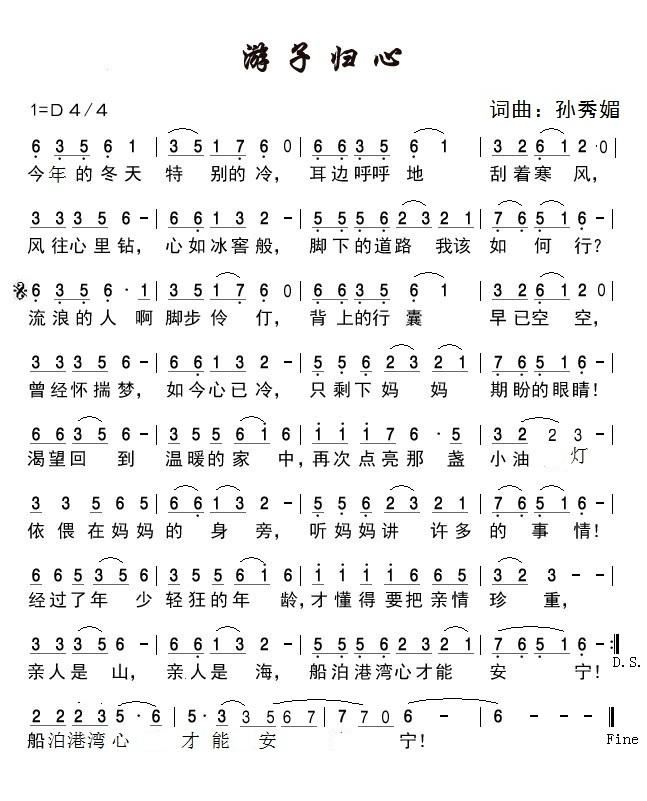 游子归心
1=D 4/4 词曲：孙秀媚
6 3 5 6 1 | 3 5 1 7 6 0 | 6 6 3 5 6 1 | 3 2 6 1 2·0 |
今年的冬天 特别的冷，耳边呼呼地 刮着寒风，
3 3 3 5 6 - | 6 6 1 3 2 - | 5 5 5 6 2 3 2 1 | 7 6 5 1 6 - |
风往心里钻，心如冰窖般，脚下的道路 我该如何行？
6 3 5 6 · 1 | 3 5 1 7 6 0 | 6 6 3 5 6 1 | 3 2 6 1 2 0 |
流浪的人啊脚步伶仃，背上的行囊 早已空空，
3 3 3 5 6 - | 6 6 1 3 2 - | 5 5 6 2 · 3 2 1 | 7 6 5 1 6 - |
曾经怀揣梦，如今心已冷，只剩下妈妈 期盼的眼睛！
6 6 3 5 6 - | 3 5 5 5 6 1 6 | 1 1 1 7 6 · 5 | 3 2 2 3 - |
渴望回到 温暖的家中，再次点亮那盏 小油灯
3 3 5 6 5 | 6 6 1 3 2 - | 5 5 5 6 2 3 2 1 | 7 6 5 1 6 - |
依偎在妈妈的身旁，听妈妈讲许多的事情！
6 6 5 3 5 6 | 3 5 5 5 6 1 6 | 1 1 1 1 6 6 5 | 3 2 3 - - |
经过了年少轻狂的年龄，才懂得要把亲情珍重，
3 3 3 5 6 - | 6 6 1 3 2 - | 5 5 5 6 2 3 2 1 | 7 6 5 1 6 - :|
亲人是山，亲人是海，船泊港湾心才能安宁！ D.S.
2 2 2 3 5 · 6 | 5 · 3 3 5 6 7 | 7 7 0 6 - | 6 - - - |
船泊港湾心 才能安 宁！ Fine